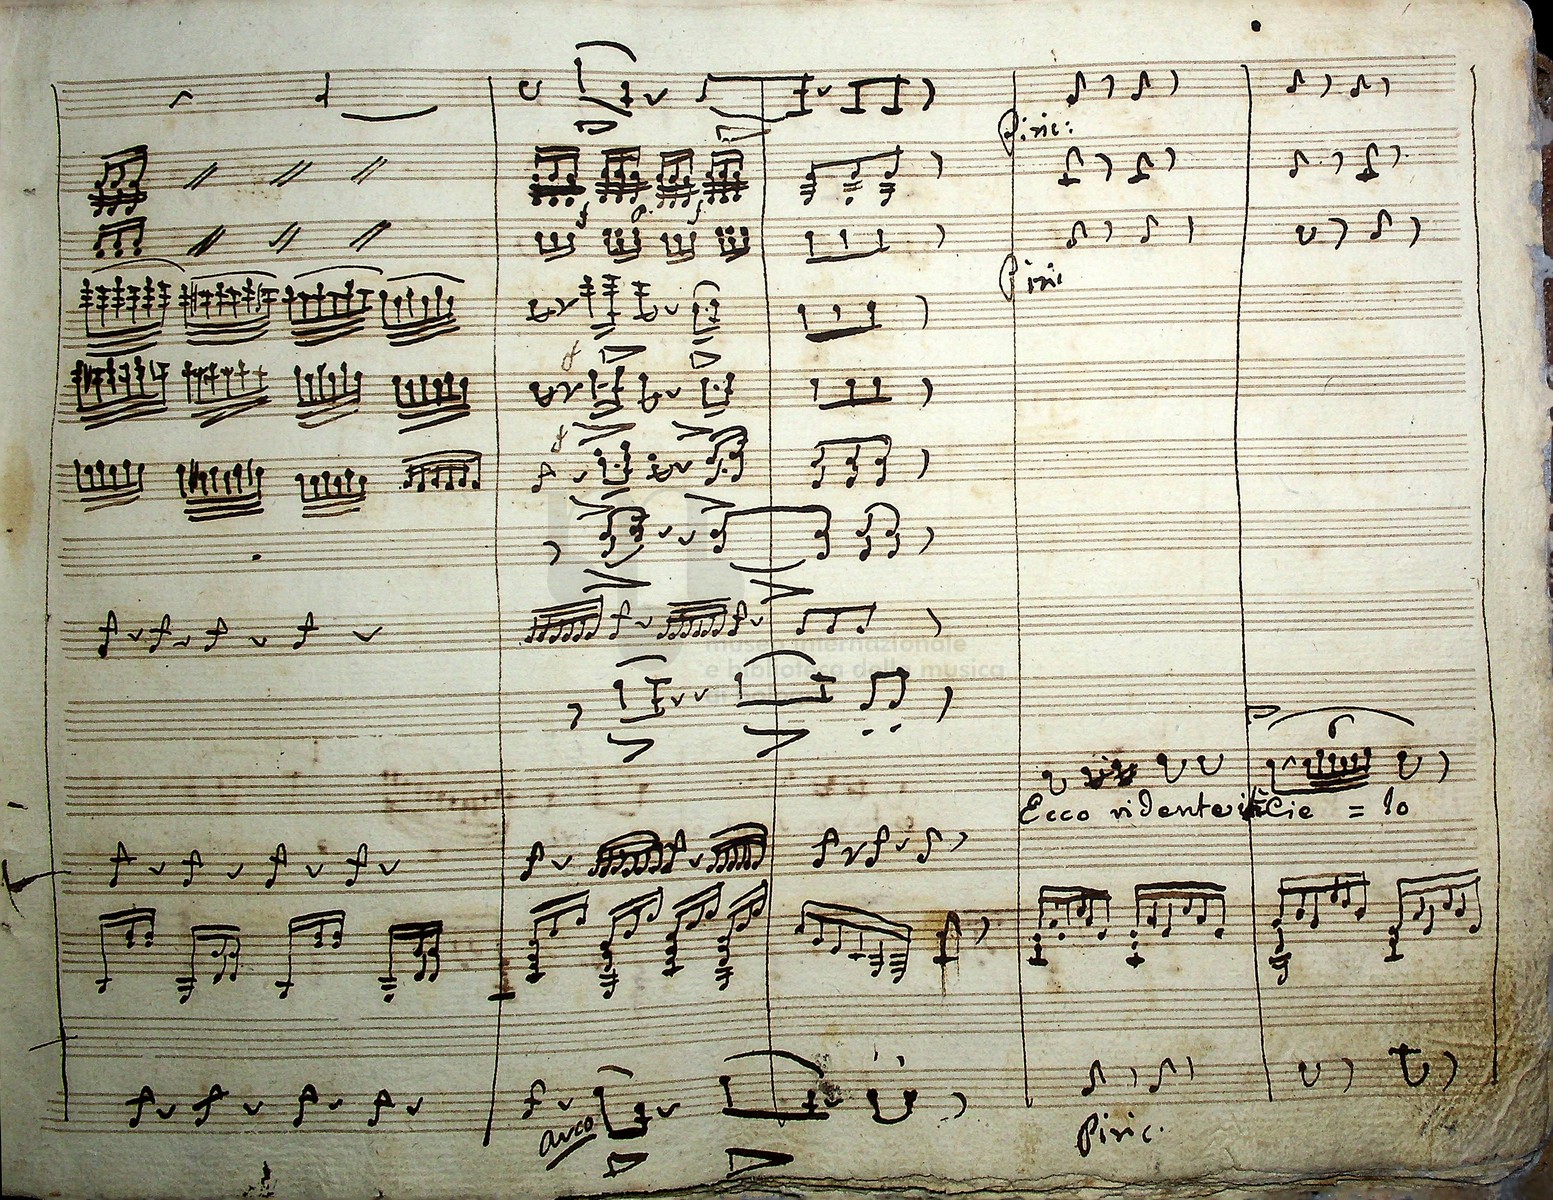 Piric:
Piric
museo internazionale
e biblioteca della musica
Ecco ridente in Cie = lo
arco
Piric: